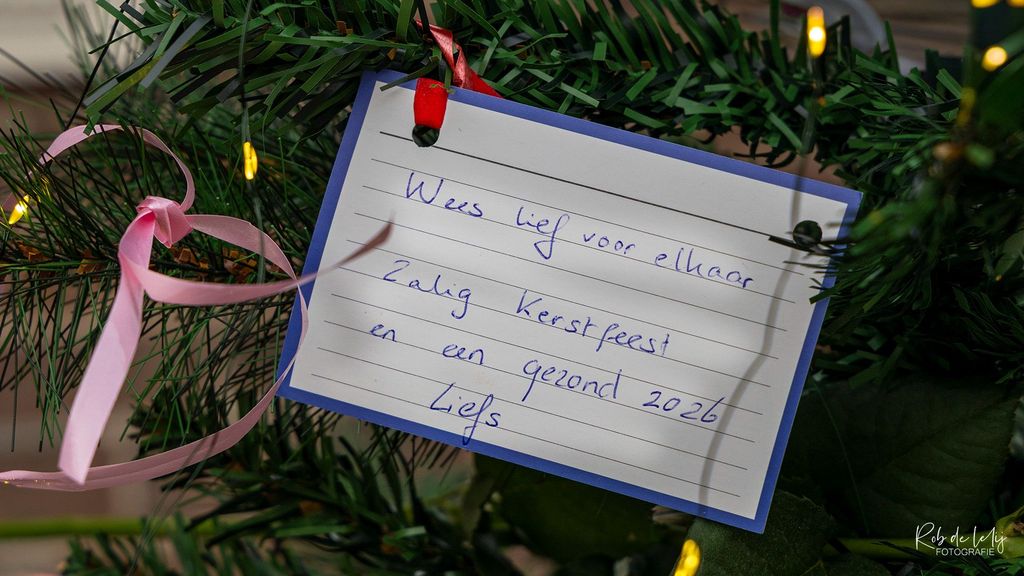 Wees lief voor elkaar
Zalig Kerstfeest
en een gezond 2026
Liefs
Rob de Lelij
FOTOGRAFIE